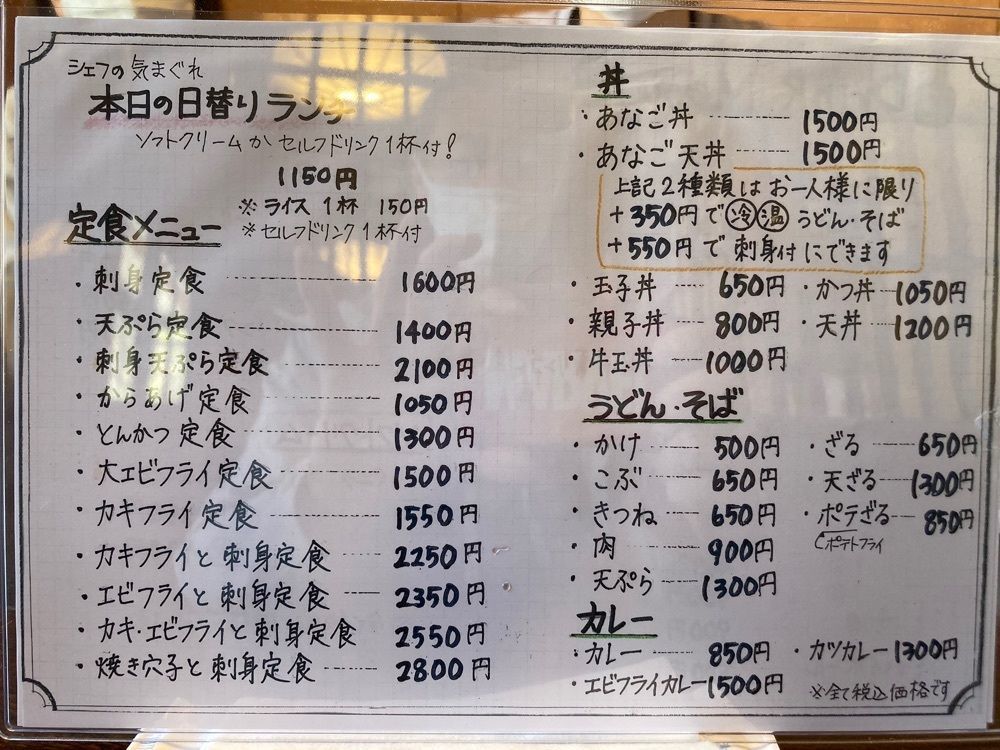 シェフの気まぐれ
本日の日替りランチ
ソフトクリームか セルフドリンク1杯付!
1150円
定食メニュー
※ ライス 1杯 150円
※ セルフドリンク1杯付
・刺身定食 1600円
・天ぷら定食 1400円
・刺身天ぷら定食 2100円
・からあげ定食 1050円
・とんかつ定食 1300円
・大エビフライ定食 1500円
・カキフライ定食 1550円
・カキフライと刺身定食 2250円
・エビフライと刺身定食 2350円
・カキ・エビフライと刺身定食 2550円
・焼き穴子と刺身定食 2800円
丼
・あなご丼 1500円
・あなご天丼 1500円
上記2種類はお一人様に限り
+350円で冷温うどん・そば
+550円で刺身付にできます
・玉子丼 650円 ・かつ丼 1050円
・親子丼 800円 ・天丼 1200円
・牛玉丼 1000円
うどん・そば
・かけ 500円 ・ざる 650円
・こぶ 650円 ・天ざる 1300円
・きつね 650円 ・ポテざる 850円
ポテトフライ
・肉 900円
・天ぷら 1300円
カレー
・カレー 850円 ・カツカレー 1300円
・エビフライカレー 1500円
※全て税込価格です